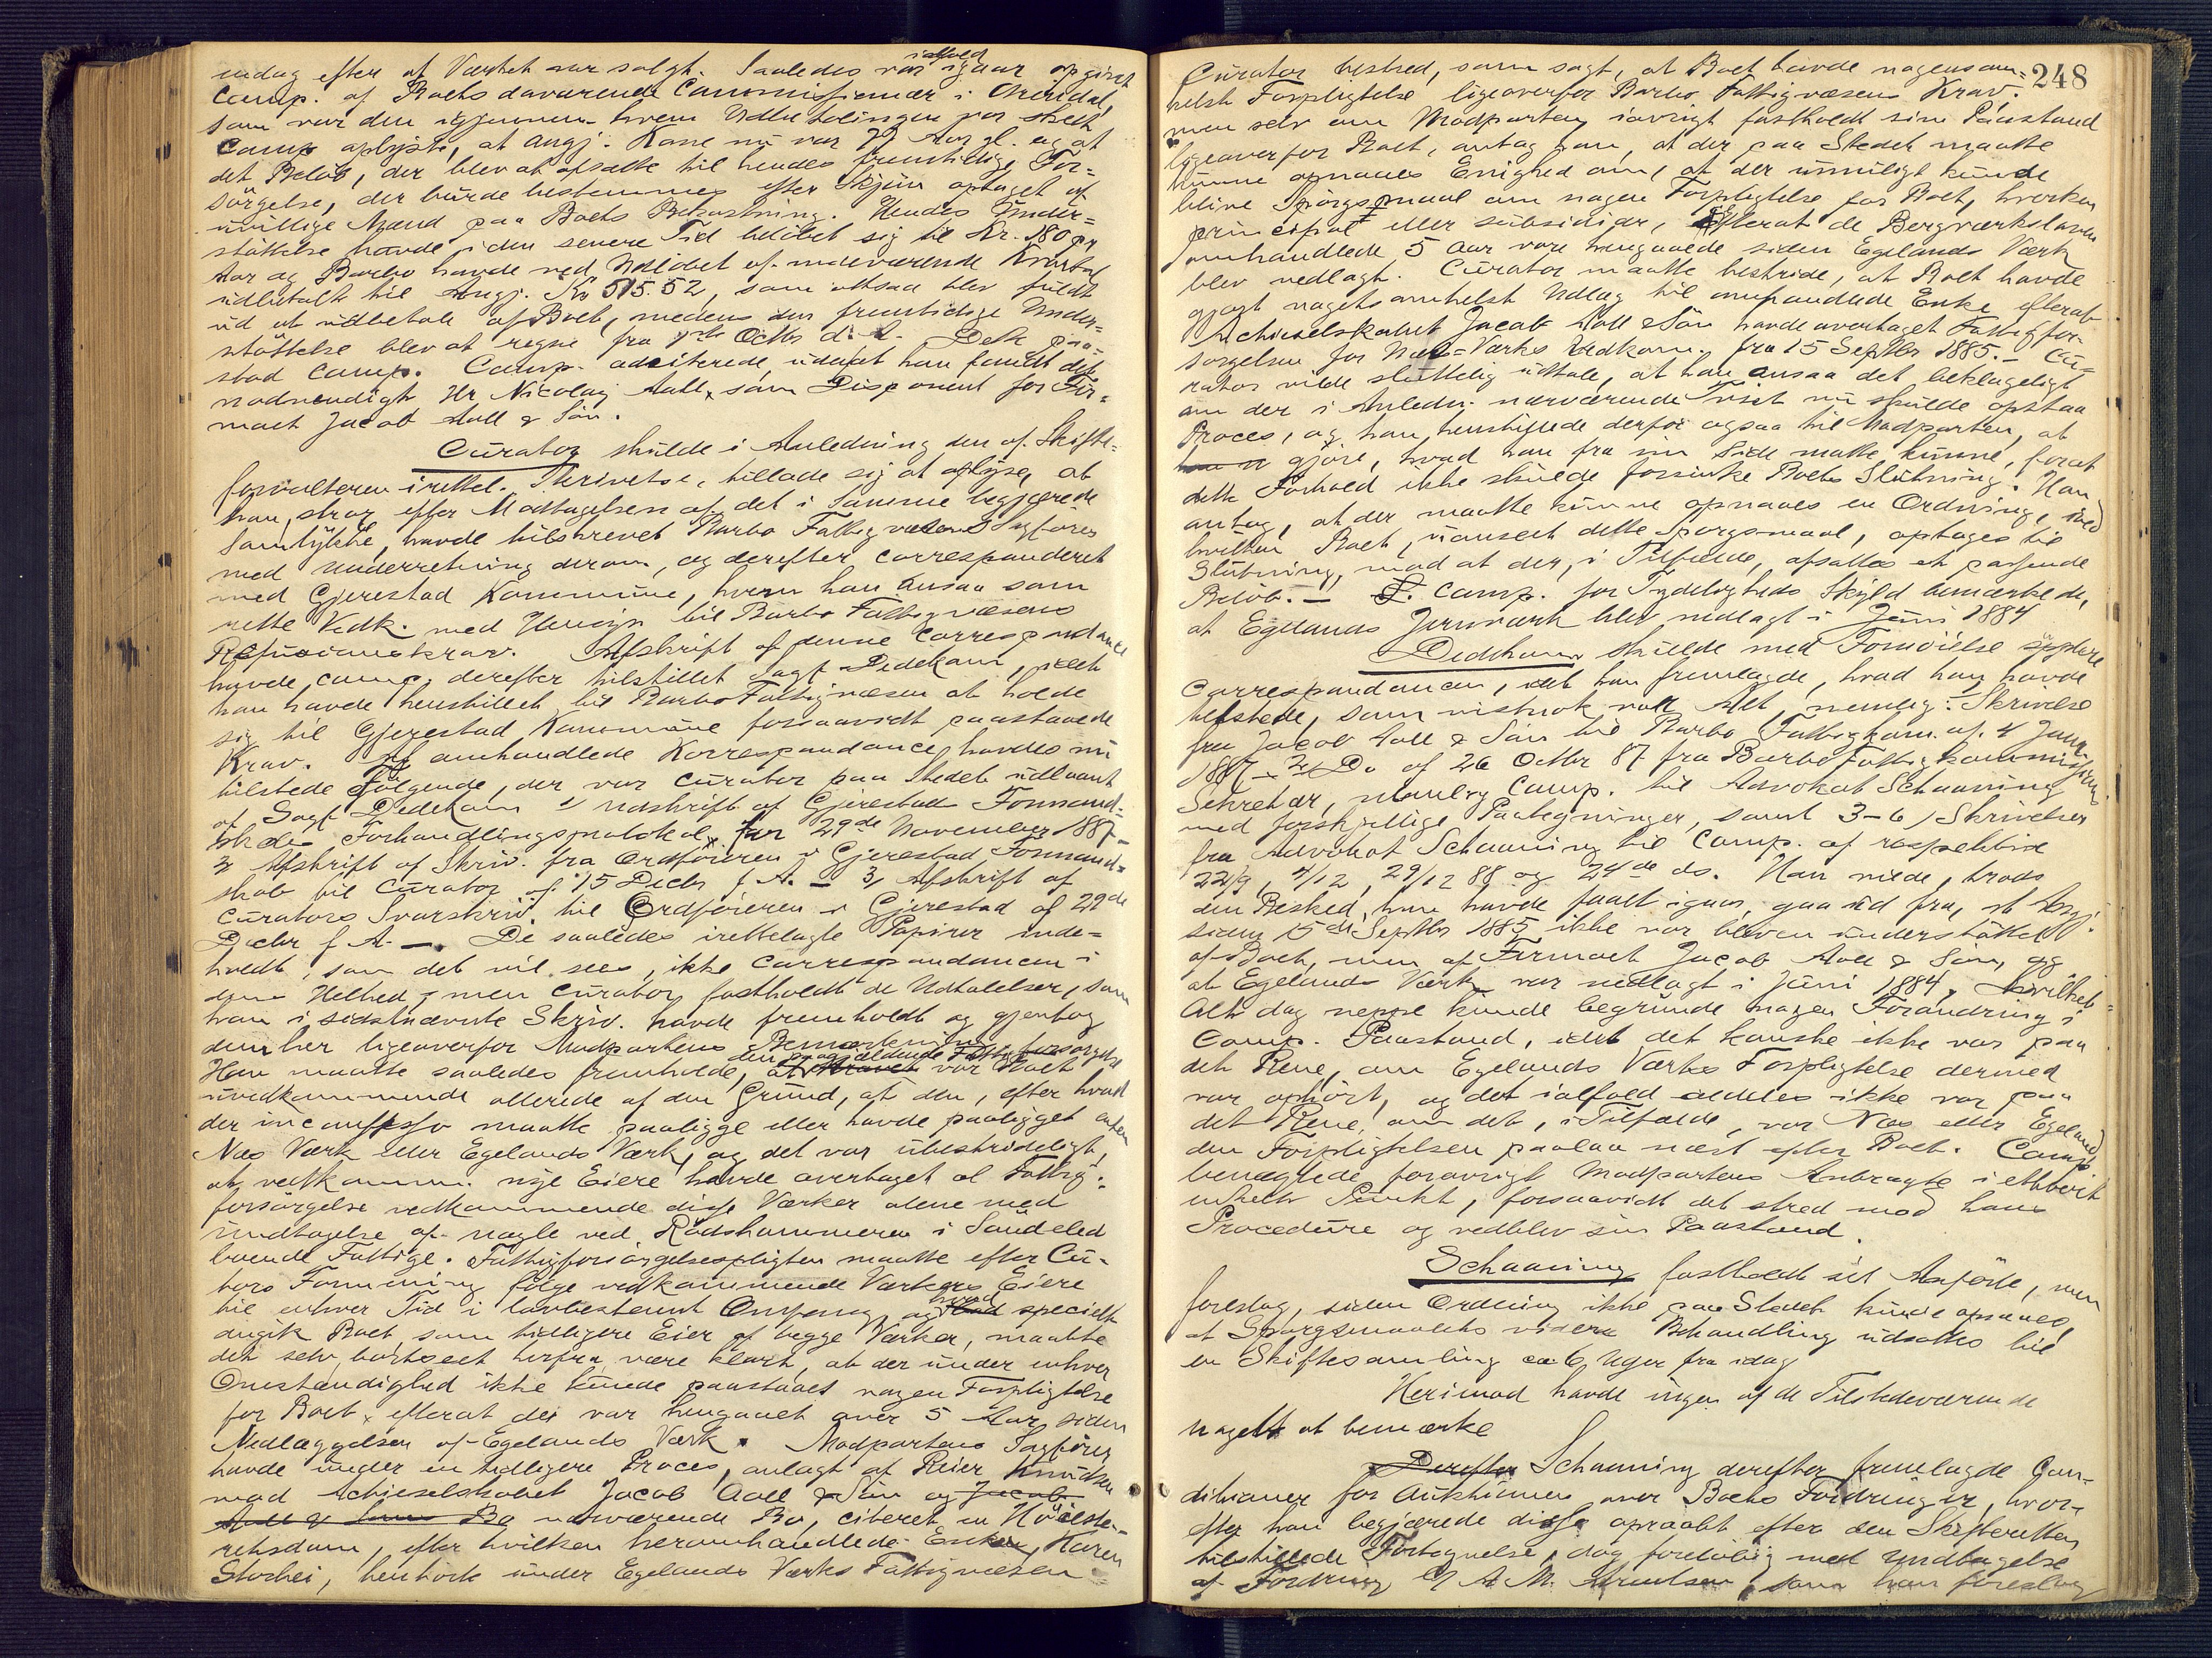 endog efter at Værket var solgt. Saaledes var ialfald igaar opgivet
Comp. af Boets daværende Commissionær i Arendal,
som var den igjennem hvem Udbetalingen var skeet
Comp oplyste, at angj. Kone nu var 77 Aar gl. og at
det Beløb, der blev at afsætte til hendes fremtidige For-
sørgelse, der burde bestemmes efter Skjøn optaget af
uvillige Mænd paa Boets Bekostning. Hendes Under-
støttelse havde i den senere Tid beløbet sig til Kr. 180 pr
Aar og Barbo havde ved Udløbet af indeværende Kvartal
udbetalt til Angj. Kr 515.52, som altsaa blev fuldt
ud at udbetale af Boet, medens den fremtidige Under-
støttelse blev at regne fra 1ste Octbr d. A. Dette paa-
stod Comp. Comp. adciterede, uden at han fandt det
nødvendigt Hr Nicolay Aall, som Disponent for Fir-
maet Jacob Aall & Søn.
Curator skulde i Anledning den af Skifte-
forvalteren irettel. Skrivelse, tillade sig at oplyse, at
han, strax efter Modtagelsen af det i Samme begjærede
Samtykke, havde tilskrevet Barbo Fattigvæsens Sagfører
med Underretning derom, og derefter corresponderet
med Gjerestad Kommune, hvem han ansaa som
rette Vedk. med Hensyn til Barbo Fattigvæsens
Refusionskrav. Afskrift af denne Correspondance
havde Comp. derefter tilstillet Sagf Dedekam, idet
han havde henstillet til Barbo Fattigvæsen at holde
sig til Gjerestad Kommune forsaavidt paastaaede
Krav. Af omhandlede Korrespondance havdes nu
tilstede Følgende, der var Curator paa Stedet udlaant
af Sagf Dedekam 1/ Udskrift af Gjerestads Formand-
skabs Forhandlingsprotokol for 29de November 1887 –
2/ Afskrift af Skriv. fra Ordføreren i Gjerestad Formand-
skab til Curator af 15 Decbr f. A. – 3/ Afskrift af
Curators Svarskriv. til Ordføreren i Gjerestad af 29de
Decbr f. A. – De saaledes irettelagte Papirer inde-
holdt, som det vil sees, ikke Correspondancen i
dens Helhed, men Curator fastholdt de Udtalelser, som
han i sidstnævnte Skriv. havde fremholdt og gjentog
dem her ligeoverfor Modpartens Bemærkning
Han maatte saaledes fremholde, at den paagjældende Fattigforsørgelse var Boet
uvedkommende allerede af den Grund, at den, efter hvad
der in confesso maatte paaligge eller havde paaligget enten
Næs Værk eller Egelands Værk, og det var ubestrideligt,
at vedkomm. nye Eiere havde overtaget al Fattig-
forsørgelse vedkommende disse Værker alene med
Undtagelse af nogle ved Rødshammeren i Søndeled
boende Fattige. Fattigforsørgelsespligten maatte efter Cu-
tors Formening følge vedkommende Værkers Eiere
til enhver Tid i lovbestemt Omfang, og hvad specielt
angik Boet som tidligere Eier af begge Værker, maatte
det selv bortseet herfra være klart, at der under enhver
Omstændighed ikke kunde paastaaes nogen Forpligtelse
for Boet, efterat der var hengaaet over 5 Aar, siden
Nedlæggelsen af Egelands Værk. Modpartens Sagfører
havde under en tidligere Proces, anlagt af Reier Knudsen
mod Actieselskabet Jacob Aall & Søn og Jacob
Aall & Søns Bo nærværende Bo, citeret en Høieste-
retsdom, efter hvilken heromhandlede Enke, Karen
Stochei, henhørte under Egelands Værks Fattigvæsen
248
Curator bestred, som sagt, at Boet havde nogensom-
helst Forpligtelse ligeoverfor Barbo Fattigvæsens Krav,
men selv om Modparten iøvrigt fastholdt sin Paastand
ligeoverfor Boet, antog han, at der paa Stedet maatte
kunne opnaaes Enighed om, at der umuligt kunde
blive Spørgsmaal om nogen Forpligtelse for Boet, hverken
principal eller subsidiær, efterat de Bergværksloven
omhandlede 5 Aar vare hengaaede siden Egelands Værk
blev nedlagt. Curator maatte bestride, at Boet havde
gjort nogetsomhelst Udlæg til omhandlede Enke efterat
Actieselskabet Jacob Aall & Søn havde overtaget Fattigfor-
sørgelsen for Næs-Værks Vedkom. fra 15 Septbr 1885. – Cu-
rator vilde sluttelig udtale, at han ansaa det beklageligt
om der i Anledn. nærværende Tvist nu skulde opstaa
Proces, og han henstillede derfor ogsaa til Modparten, at
gjøre, hvad han fra sin Side matte kunne, forat
dette Forhold ikke skulde forsinke Boets Slutning. Han
antog, at der maatte kunne opnaaes en Ordning, ved
hvilken Boet, uanseet dette Spørgsmaal, optages til
Slutning, mod at der, i Tilfælde, afsattes et passende
Beløb. – Comp. for Tydeligheds Skyld bemærkede,
at Egelands Jernværk blev nedlagt i Juni 1884
Dedekam skulde med Fornøielse supplere
Correspondancen, idet han fremlagde, hvad han havde
tilstede, som vistnok var Alt, nemlig: Skrivelse
fra Jacob Aall & Søn til Barbo Fattigkom. af 4 Janr
1887 – 2/ Do af 26 Octbr 87 fra Barbo Fattigkommissions
Sekretær, nemlig Comp. til Advokat Schaaning
med forskjellige Paategninger, samt 3–6/ Skrivelser
fra Advokat Schaaning til Comp. af respektive
22/9, 4/12, 29/12 88 og 24de ds. Han vilde, trods
den Besked, han havde faaet igaar, gaa ud fra, at Angj.
siden 15de Septbr 1885 ikke var bleven understøttet
af Boet, men af Firmaet Jacob Aall & Søn, og
at Egelands Værk var nedlagt i Juni 1884, hvilket
Alt dog neppe kunde begrunde nogen Forandring i
Comp. Paastand, idet det kanske ikke var paa
det Rene, om Egelands Værks Forpligtelse dermed
var ophørt, og det ialfald aldeles ikke var paa
det Rene, om det, i Tilfælde, var Næs eller Egeland
den Forpligtelsen paalaa næst efter Boet. Comp
benægtede forøvrigt Modpartens Anbragte i ethvert
enkelt Punkt, forsaavidt det stred mod hans
Procedure og vedblev sin Paastand.
Schaaning fastholdt sit Anførte, men
foreslog, siden Ordning ikke paa Stedet kunde opnaaes,
at Spørgsmaalets videre Behandling udsattes til
en Skiftesamling ca 6 Uger fra idag
Herimod havde ingen af de Tilstedeværende
noget at bemærke
Derefter Schaaning derefter fremlagde Con-
ditioner for Auktionen over Boets Fordringer, hvor-
efter han begjærede disse opraabt efter den Skifteretten
tilstillede Fortegnelse, dog foreløbig med Undtagelse
af Fordring A. M. , som han foreslog